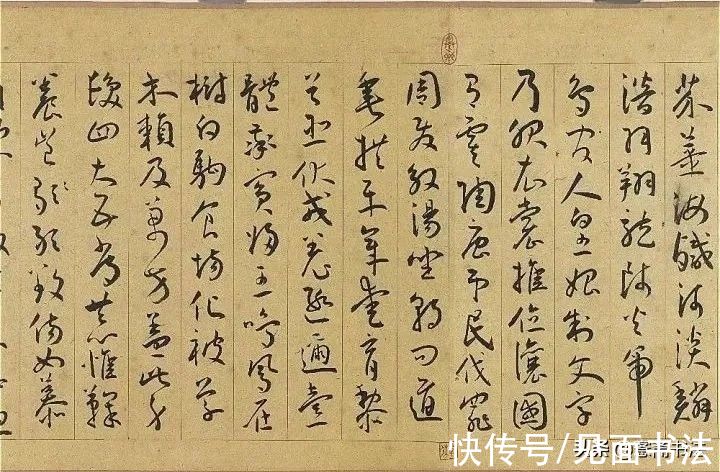 芥薑海鹹河淡鱗
潛羽翔龍師火帝
鳥官人皇始制文字
乃服衣裳推位讓國
有虞陶唐弔民伐罪
周發殷湯坐朝問道
垂拱平章愛育黎
首臣伏戎羌遐邇壹
體率賓歸王鳴鳳在
樹白駒食場化被草
木賴及萬方蓋此身
髮四大五常恭惟鞠
養豈敢毀傷女慕
快传号/见面书法